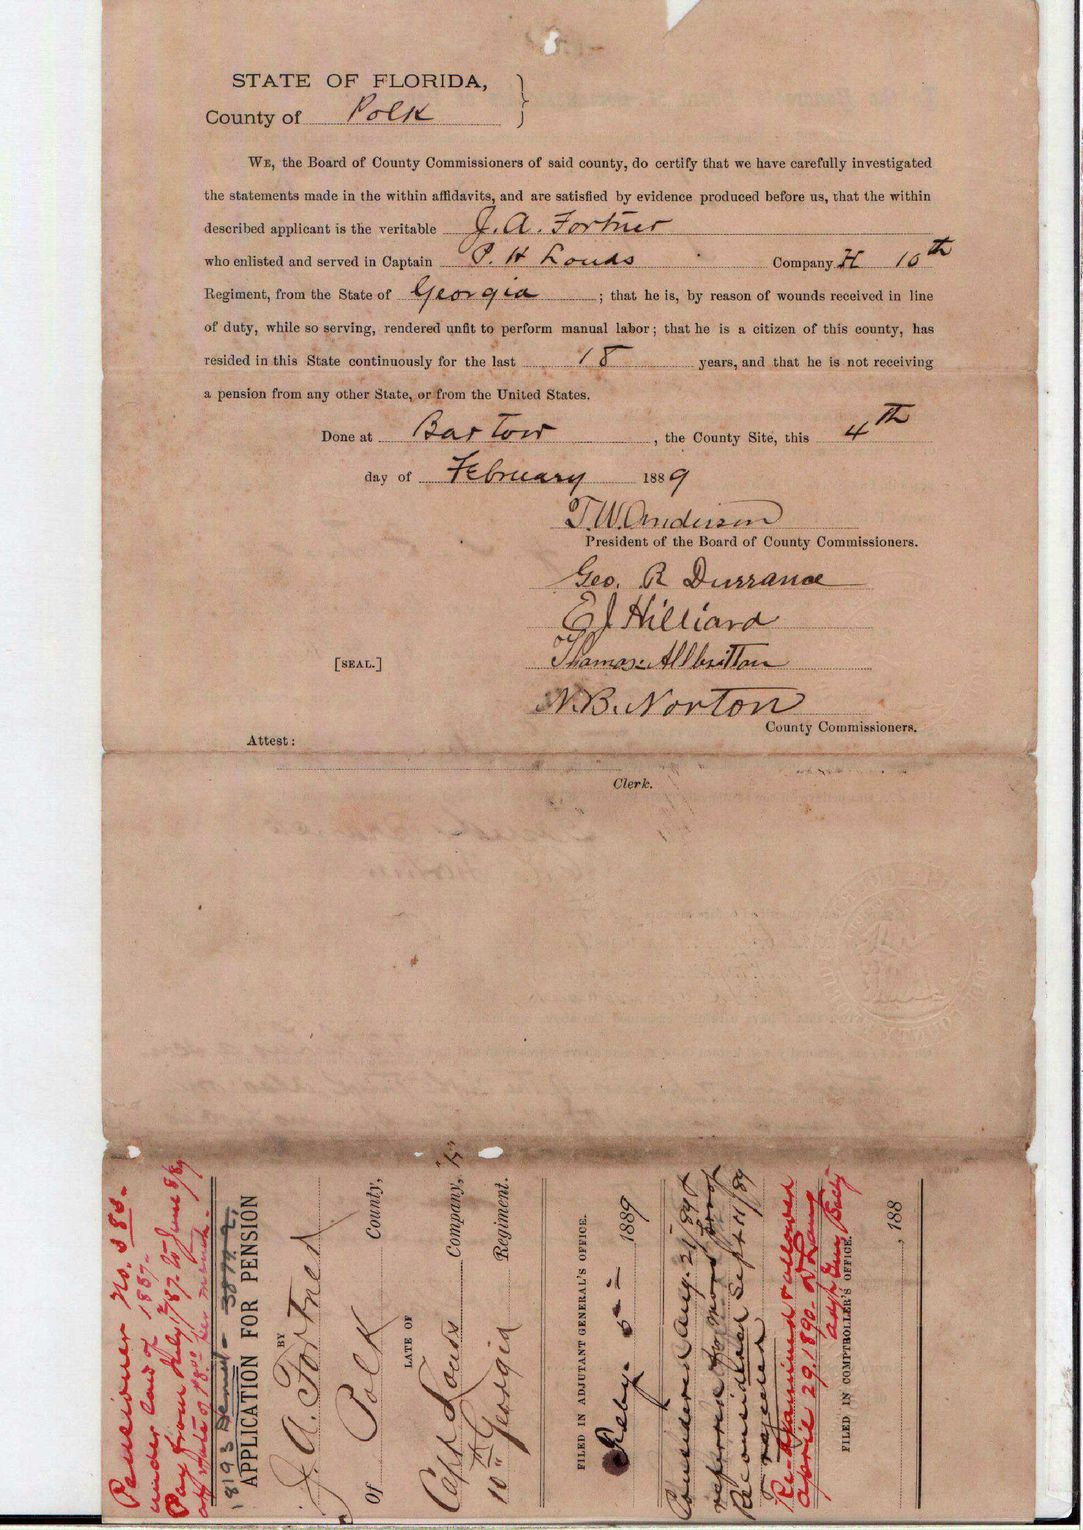 STATE OF FLORIDA,
County of Polk
WE, the Board of County Commissioners of said county, do certify that we have carefully investigated
the statements made in the within affidavits, and are satisfied by evidence produced before us, that the within
described applicant is the veritable J. A. Fortner
who enlisted and served in Captain P. H Louds Company H 10th
Regiment, from the State of Georgia ; that he is, by reason of wounds received in line
of duty, while so serving, rendered unfit to perform manual labor; that he is a citizen of this county, has
resided in this State continuously for the last 18 years, and that he is not receiving
a pension from any other State, or from the United States.
Done at Bartow , the County Site, this 4th
day of February 1889
T. W. Anderson
President of the Board of County Commissioners.
Geo. R Durrance
E J Hilliard
Thomas Allbritton
[SEAL.]
N. B. Norton
County Commissioners.
Attest:
Clerk.
Pensioner No.
under law of 1887.
Pay from July 1/87 to June 8/89
at rate of per month.
APPLICATION FOR PENSION
BY
J. A. Fortner
Of Polk County,
LATE OF
Capt Louds Company,
10th Georgia Regiment.
FILED IN ADJUTANT GENERAL'S OFFICE.
Feby 5 1889
Considered Aug. 21/89 &
referred for more proof
Reconsidered Sept 11/89
& rejected
Re-examined & allowed
April 29. 1890. D Lang
FILED IN COMPTROLLER'S OFFICE.
, 188